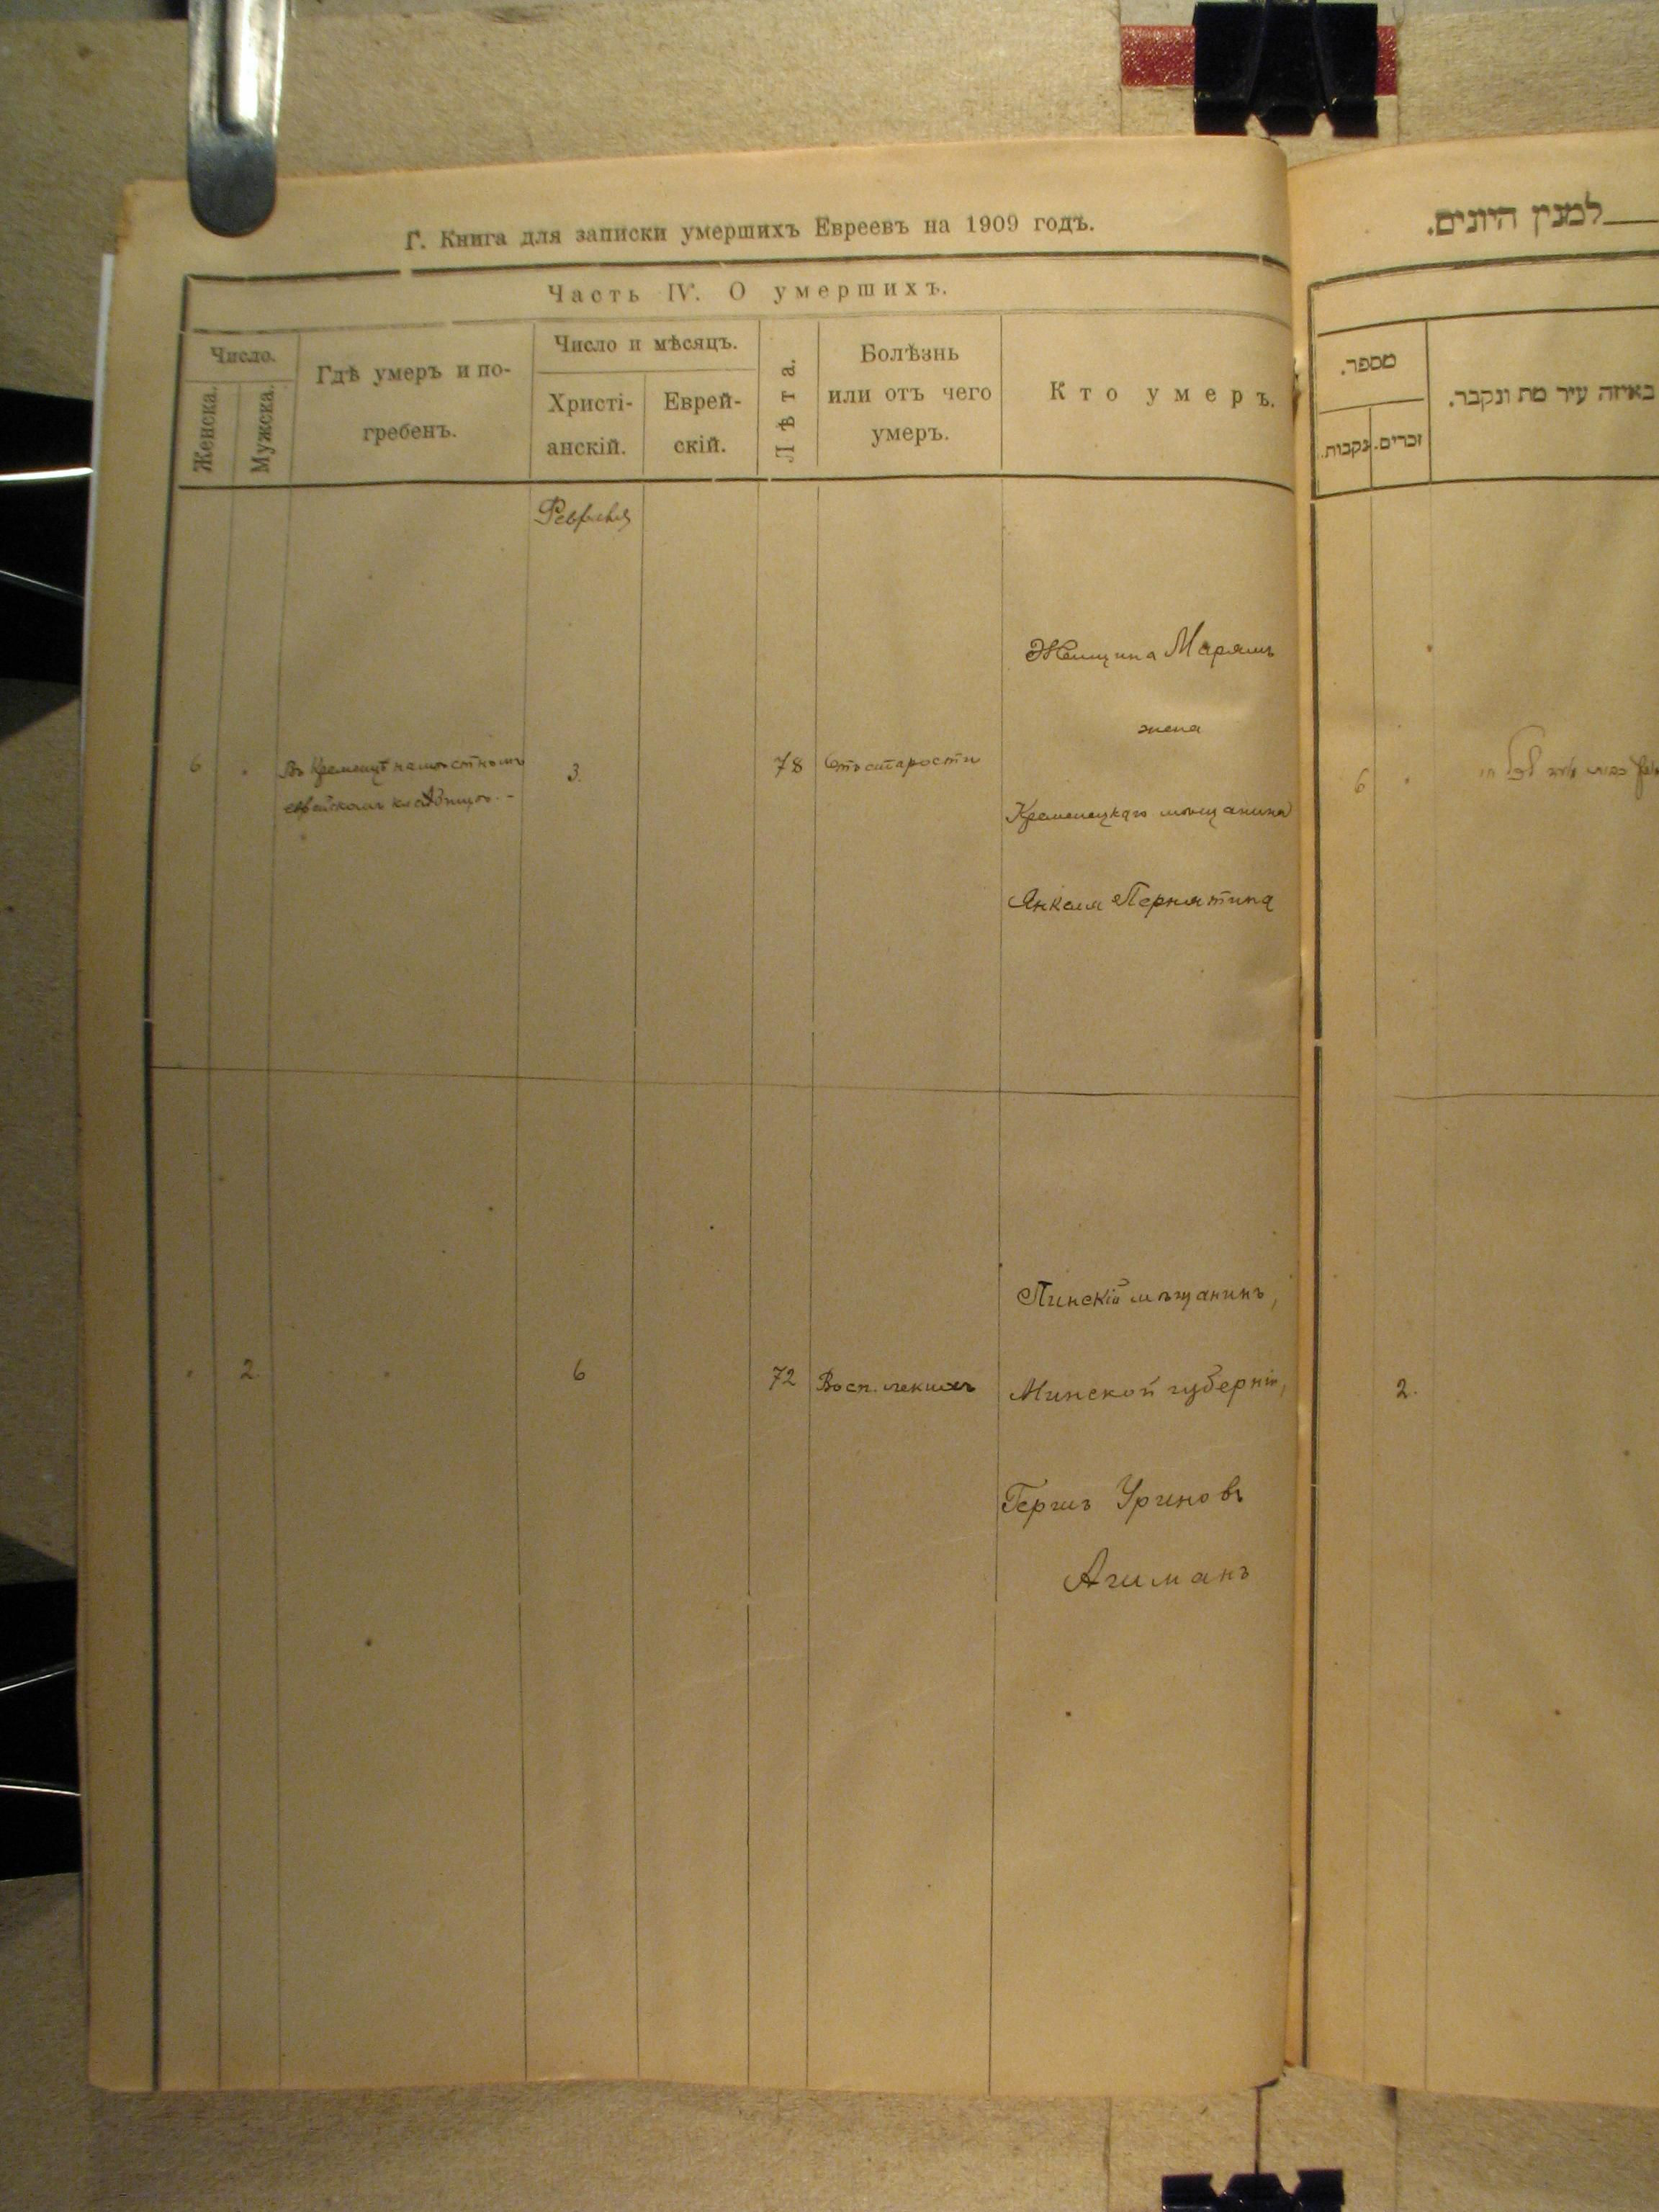 Г. Книга для записки умершихъ Евреевъ на 1909 годъ.
Часть IV. О умершихъ.
Число.
Женска.
Мужска.
Гдѣ умеръ и по-
гребенъ.
Число и мѣсяцъ.
Христі-
анскій.
Еврей-
скій.
Лѣта.
Болѣзнь
или отъ чего
умеръ.
Кто умеръ.
Февраля
6
Въ Кременцѣ на мѣстномъ
еврейскомъ кладбищѣ. -
3.
78
Отъ старости
Женщина Марямъ
жена
Кременецкаго мѣщанина
Янкеля Пернятина
2.
6
72
Восп. легкихъ
Пинскій мѣщанинъ,
Минской губерніи,
Гершъ Уриновъ
Агиманъ
למנין היונים.
מספר.
נקבות.
זכרים.
באיזה עיר מת ונקבר.
6
2.